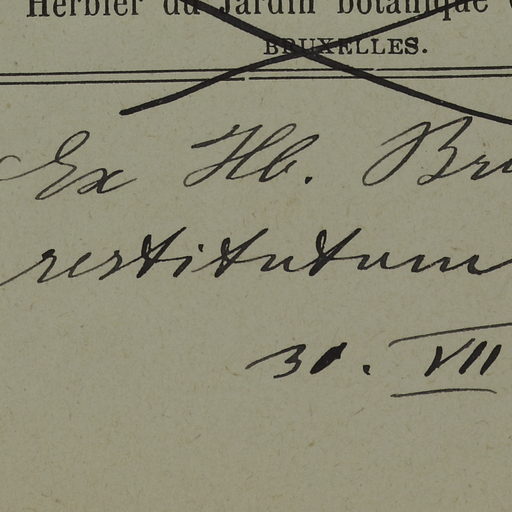 Herbier du Jardin botanique
BRUXELLES.
Ex Hb. Bru
restitutum
30. VII